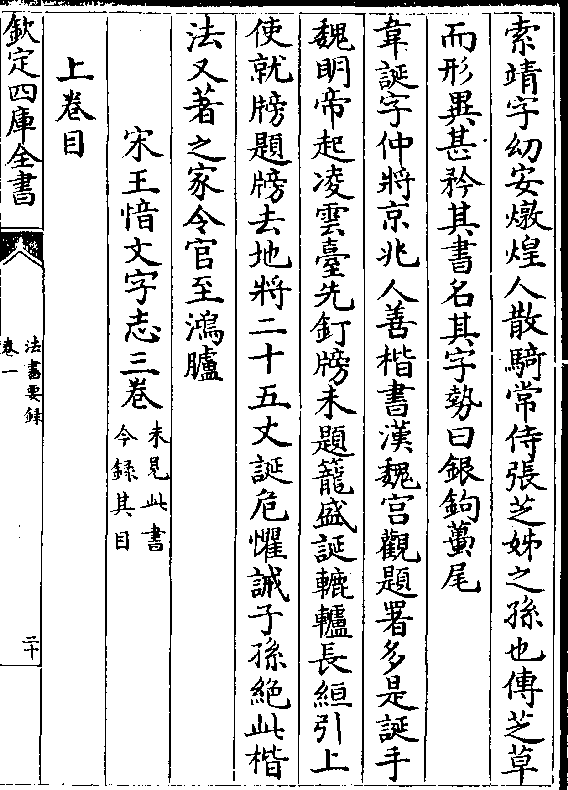 索靖字幼安燉煌人散騎常侍張芝姊之孫也傳芝草
而形異甚矜其書名其字勢曰銀鉤蠆尾
韋誕字仲將京兆人善楷書漢魏宮觀題署多是誕手
魏明帝起凌雲臺先釘牓未題籠盛誕轆轤長絙引上
使就牓題牓去地將二十五丈誕危懼誡子孫絕此楷
法又著之家令官至鴻臚
宋王愔文字志三卷
未見此書
今録其目
上卷目
欽定四庫全書
法書要録
卷一
二十